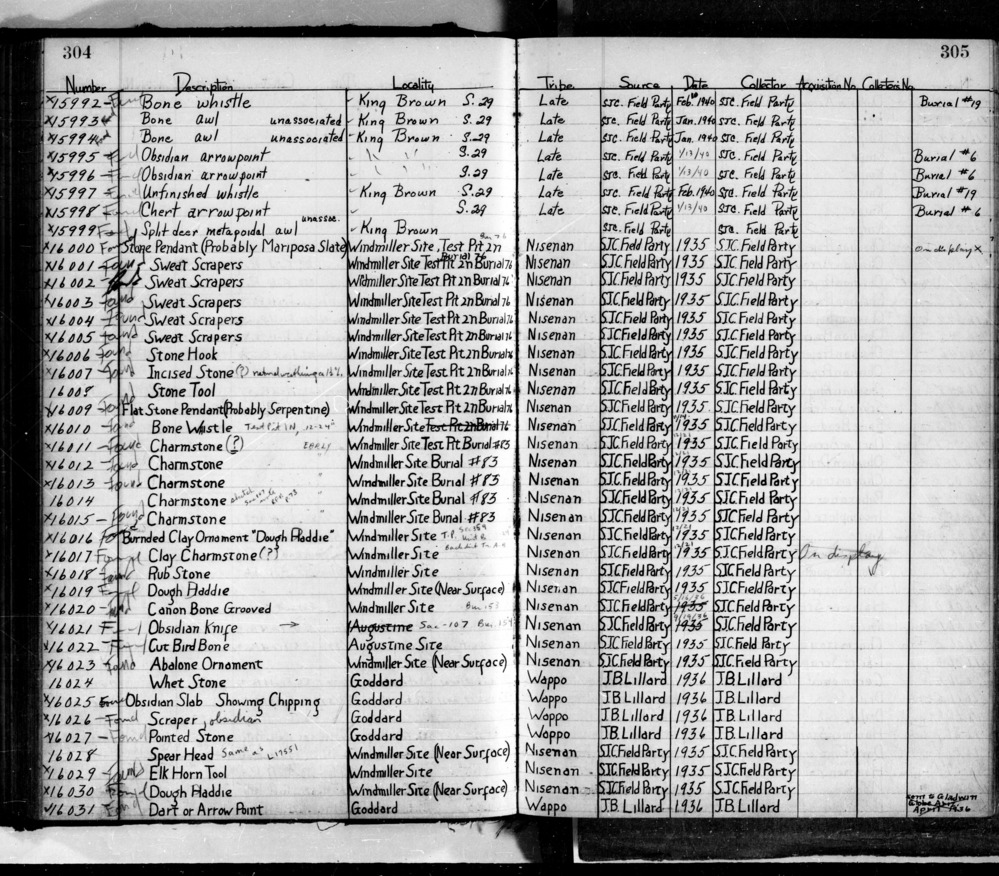 304
305
Number Description Locality Tribe Source Date Collector Acquisition No. Collectors No.
x15992- Found Bone whistle - King Brown S.29 Late SJC. Field Party Feb. 1940 SJC. Field Party Burial #19
x15993 Bone awl unassociated - King Brown S.29 Late SJC. Field Party Jan. 1940 SJC. Field Party
x15994 Bone awl unassociated - King Brown S.29 Late SJC. Field Party Jan. 1940 SJC. Field Party
x15995 - Obsidian arrowpoint - " " S.29 Late SJC. Field Party 1/13/40 SJC. Field Party Burial #6
x15996 - Obsidian arrowpoint - S.29 Late SJC. Field Party 1/13/40 SJC. Field Party Burial #6
x15997 - Unfinished whistle - King Brown S.29 Late SJC. Field Party Feb. 1940 SJC. Field Party Burial #19
x15998 Chert arrowpoint S.29 Late SJC. Field Party 1/13/40 SJC. Field Party Burial #6
x15999 Split deer metapodal awl unassoc. - King Brown SJC. Field Party SJC. Field Party
x16000 Stone Pendant (Probably Mariposa Slate) Windmiller Site, Test Pit 2n Burial 76 Nisenan SJC Field Party 1935 SJC. Field Party On display x
x16001 - found Sweat Scrapers Windmiller Site Test Pit 2n Burial 76 Nisenan SJC Field Party 1935 SJC Field Party
x16002 - Sweat Scrapers Windmiller Site Test Pit 2n Burial 76 Nisenan SJC Field Party 1935 SJC Field Party
x16003 - found Sweat Scrapers Windmiller Site Test Pit 2n Burial 76 Nisenan SJC Field Party 1935 SJC Field Party
x16004 - found Sweat Scrapers Windmiller Site Test Pit 2n Burial 76 Nisenan SJC Field Party 1935 SJC Field Party
x16005 - found Sweat Scrapers Windmiller Site Test Pit 2n Burial 76 Nisenan SJC Field Party 1935 SJC Field Party
x16006 found Stone Hook Windmiller Site Test Pit 2n Burial 76 Nisenan SJC Field Party 1935 SJC Field Party
x16007 - found Incised Stone (?) Windmiller Site Test Pit 2n Burial 76 Nisenan SJC Field Party 1935 SJC Field Party
16008 Stone Tool Windmiller Site Test Pit 2n Burial 76 Nisenan SJC Field Party 1935 SJC Field Party
x16009 - found Flat Stone Pendant (Probably Serpentine) Windmiller Site Test Pit 2n Burial 76 Nisenan SJC Field Party 1935 SJC Field Party
x16010 - found Bone Whistle Test Pit 1N, 12-24" Windmiller Site Test Pit 2n Burial 76 Nisenan SJC Field Party 1935 SJC Field Party
x16011 - found Charmstone (?) EARLY Windmiller Site Test Pit Burial #83 Nisenan SJC Field Party 1935 SJC. Field Party
x16012 - found Charmstone " Windmiller Site Burial #83 Nisenan SJC Field Party 1935 SJC Field Party
x16013 - found Charmstone " Windmiller Site Burial #83 Nisenan SJC Field Party 1935 SJC Field Party
16014 Charmstone " Windmiller Site Burial #83 Nisenan SJC Field Party 1935 SJC Field Party
x16015 - found Charmstone Windmiller Site Burial #83 Nisenan SJC Field Party 1935 SJC Field Party
x16016 Burnded Clay Ornament "Dough Haddie" Windmiller Site Nisenan SJC Field Party 1935 SJC Field Party
x16017 Found Clay Charmstone (?) Windmiller Site Nisenan SJC Field Party 1935 SJC Field Party On display
x16018 - found Rub Stone Windmiller Site Nisenan SJC Field Party 1935 SJC Field Party
x16019 - Dough Haddie Windmiller Site (Near Surface) Nisenan SJC Field Party 1935 SJC Field Party
x16020 - Canon Bone Grooved Windmiller Site Bur. 153 Nisenan SJC Field Party 1935 SJC Field Party
x16021 Obsidian Knife → Augustine Sac-107 Nisenan SJC Field Party 1935 SJC Field Party
x16022 - Cut Bird Bone Augustine Site Nisenan SJC Field Party 1935 SJC Field Party
x16023 found Abalone Ornament Windmiller Site (Near Surface) Nisenan SJC Field Party 1935 SJC Field Party
16024 Whet Stone Goddard Wappo J.B. Lillard 1936 J.B. Lillard
x16025 Obsidian Slab Showing Chipping Goddard Wappo J.B. Lillard 1936 J.B. Lillard
x16026 - Found Scraper, obsidian Goddard Wappo J.B. Lillard 1936 J.B. Lillard
x16027 - Found Pointed Stone Goddard Wappo J.B. Lillard 1936 J.B. Lillard
16028 Spear Head Same as L17551 Windmiller Site (Near Surface) Nisenan SJC Field Party 1935 SJC Field Party
x16029 - found Elk Horn Tool Windmiller Site Nisenan SJC Field Party 1935 SJC Field Party
x16030 Dough Haddie Windmiller Site (Near Surface) Nisenan SJC Field Party 1935 SJC Field Party
x16031 Dart or Arrow Point Goddard Wappo J.B. Lillard 1936 J.B. Lillard Sent to Gladwin Globe Ariz. April 1936